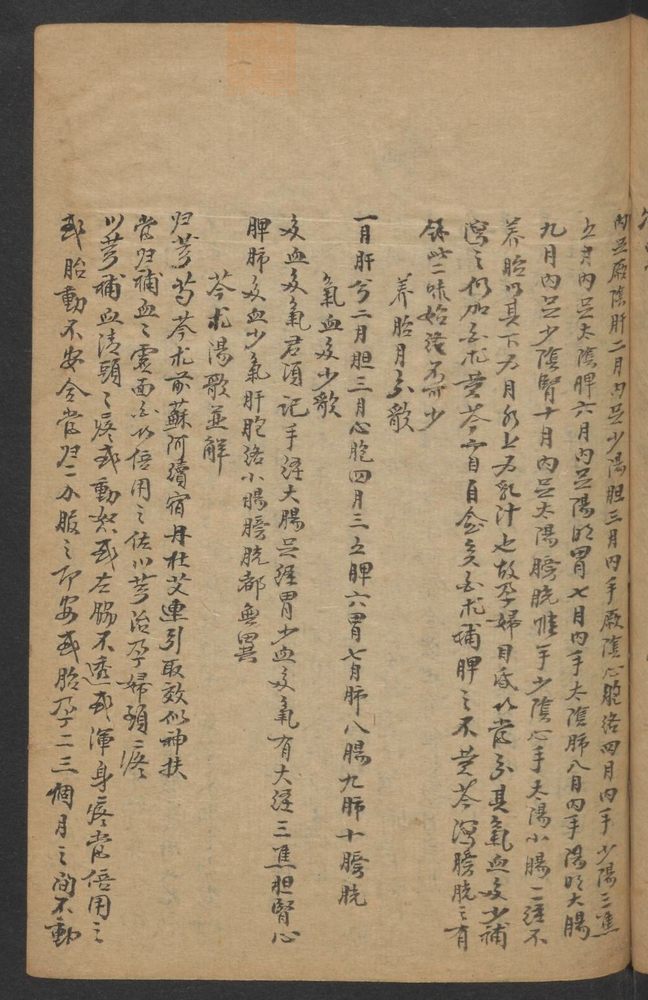 内足厥陰肝二月内足少陽胆三月内手厥陰心胞絡四月内手少陽三焦
五月内足太陰脾六月内足陽明胃七月内手太陰肺八月内手陽明大腸
九月内足少陰腎十月内足太陽膀胱惟手少陰心手太陽小腸二経不
养胎以其下为月水上为乳汁也故孕婦目 以常分其氣血多少補
瀉之仍加白朮黄芩 自 白朮補脾之 黄芩瀉膀胱之有
餘此二味始終不可少
养胎月分歌
一月肝兮二月胆三月心胞四月三五脾六胃七月肺八腸九肺十膀胱
氣血多少歌
多血多氣君須記手経大腸足経胃少血多氣有六経三焦胆腎心
脾肺多血少氣肝胞絡小腸膀胱都無異
芩朮湯歌並解
归芎芍芩朮 蘇阿續宿丹杜艾連引取效似神扶
當归補血之 倍用之佐川芎治孕婦頭疼
川芎補血清頭之疼或動 或左脇不 或渾身疼當倍用之
或胎動不安 當归二分服之即安或胎孕二三個月之間不動